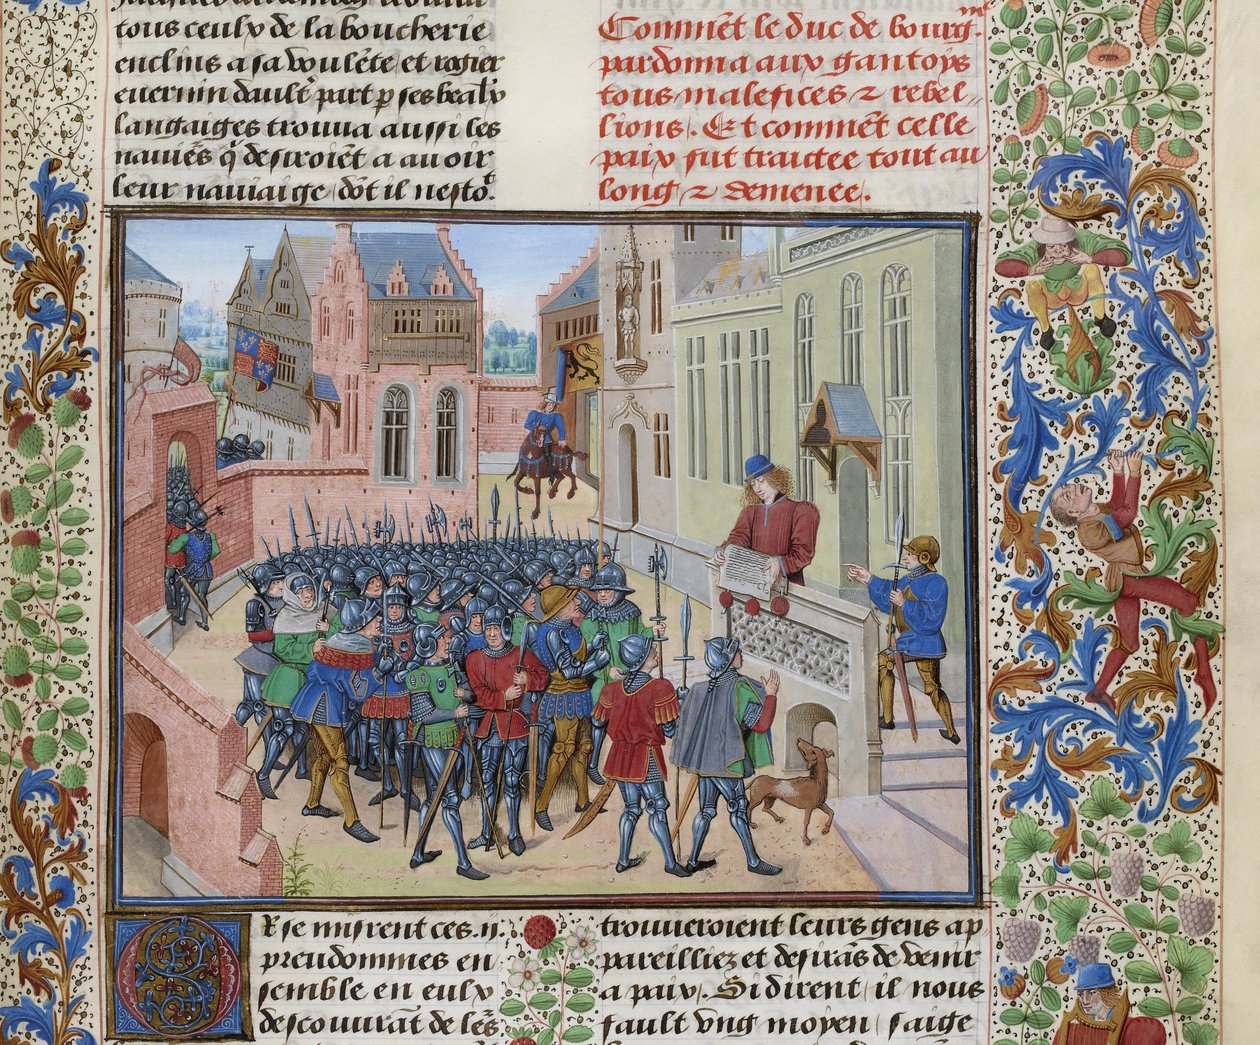 tous ceulx de la boucherie
enclins a sa voulẽte et rogier
eueruin dault' part p ses beaulx
langaiges trouua aussi les
nauiẽs q̃ desiroiẽt a auoir
leur nauiaige dõt il nesto
Commẽt le duc de bourg.
pardonna aux gantoys
tous malefices ⁊ rebel
lions. Et commẽt celle
paix fut traictee tout au
long ⁊ demenee.
Or se misrent ces .ij.
preudommes en
semble en eulx
descouurãt de lẽs
trouueroient leurs gens ap
pareilliez et desirãs de venir
a paix. Si dirent / il nous
fault vng moyen / saige